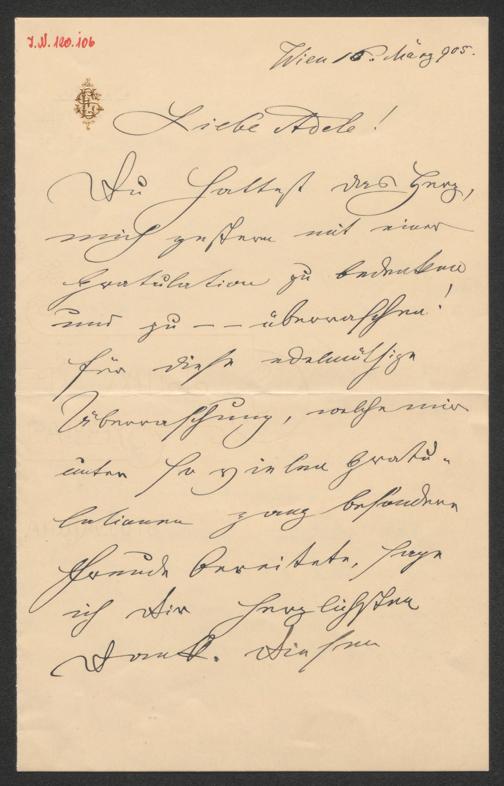 J.N. 120.106
Wien 16. März 905.
Liebe Adele!
Du hattest das Herz,
mich gestern mit einer
Gratulation zu bedenken
und zu – – überraschen!
für diese edelmüthige
Überraschung, welche mir
unter so vielen Gratu-
lationen ganz besondere
Freude bereitete, sage
ich Dir herzlichsten
Dank. Diesen